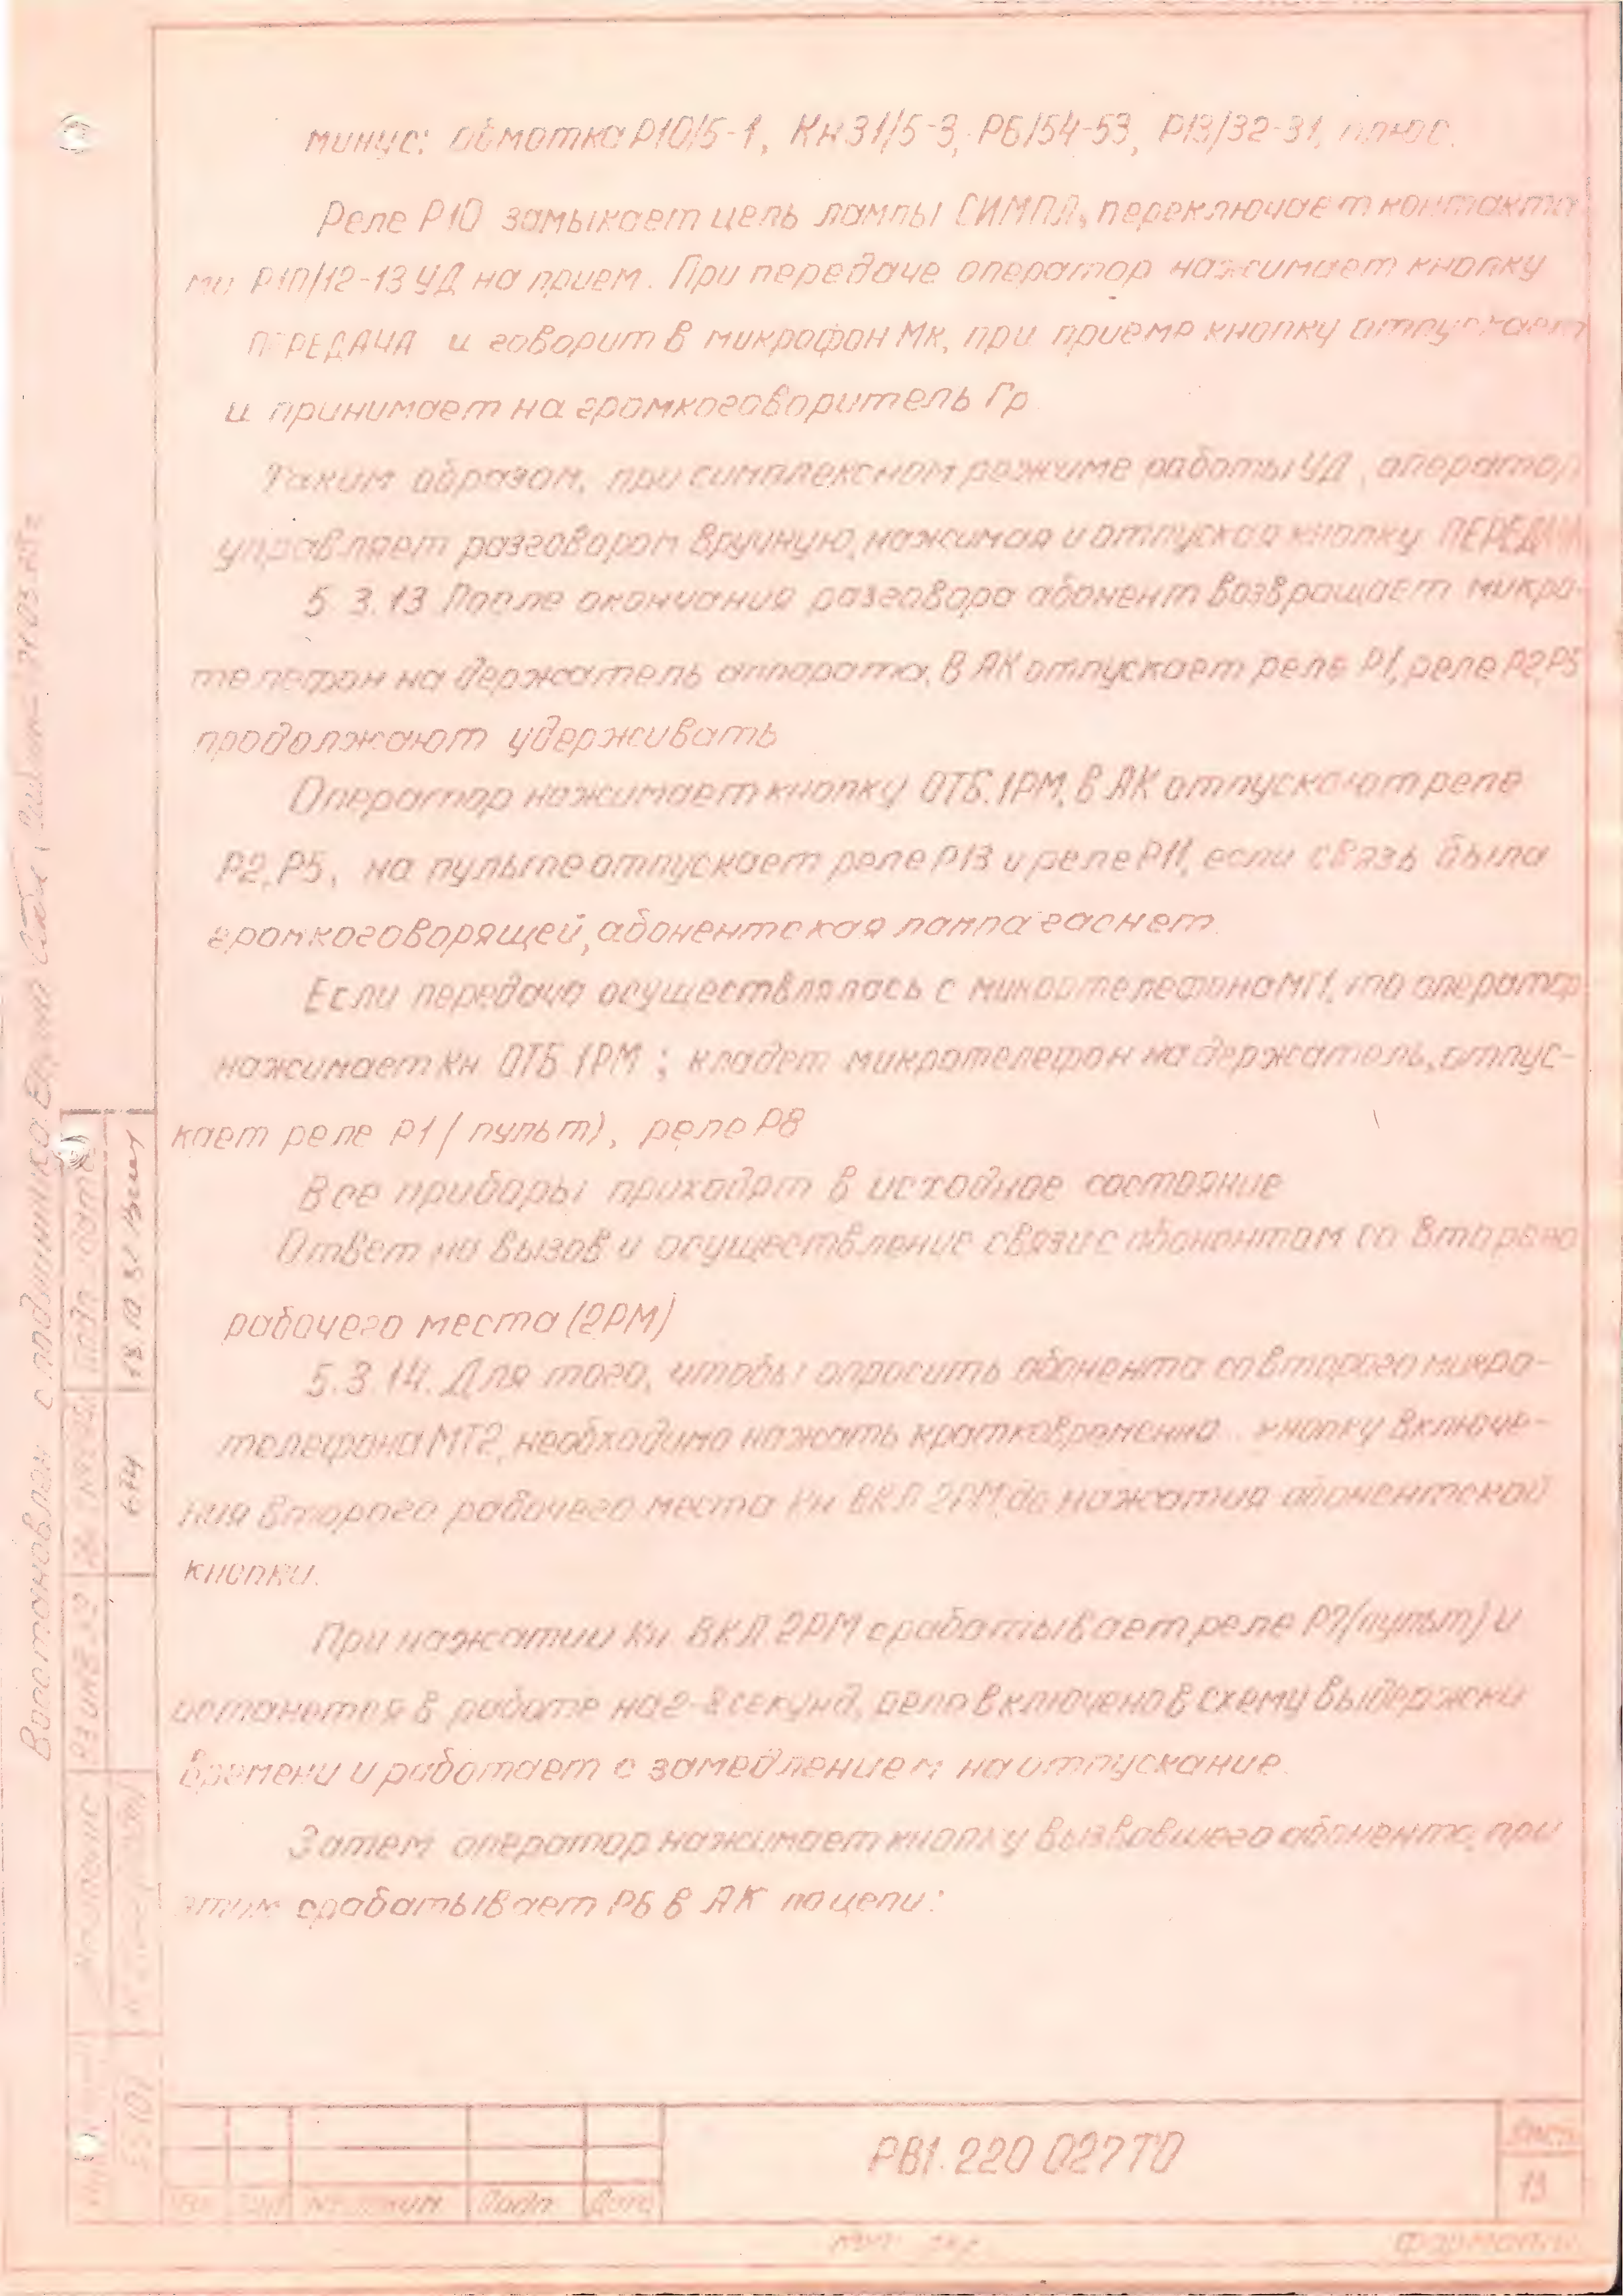 минус: обмотка Р10/5-1, Кн31/5-3, Р6/54-53, Р13/32-31, плюс.
Реле Р10 замыкает цепь лампы СИМПЛ, переключает контакта-
ми Р10/12-13 УД на прием. При передаче оператор нажимает кнопку
ПЕРЕДАЧА и говорит в микрофон Мк, при приеме кнопку отпускает
и принимает на громкоговоритель Гр
Таким образом, при симплексном режиме работы УД, оператор
управляет разговором вручную, нажимая и отпуская кнопку ПЕРЕДАЧА
5.3.13 После окончания разговора абонент возвращает микро-
телефон на держатель аппарата, в АК отпускает реле Р1, реле Р2,Р5
продолжают удерживать
Оператор нажимает кнопку ОТБ.1РМ, в АК отпускают реле
Р2,Р5, на пульте отпускает реле Р13 и реле Р11, если связь была
громкоговорящей, абонентская лампа гаснет.
Если передача осуществлялась с микротелефона МТ1, то оператор
нажимает Кн ОТБ.1РМ; кладет микротелефон на держатель, отпус-
кает реле Р1 (пульт), реле Р8
Все приборы приходят в исходное состояние
Ответ на вызов и осуществление связи с абонентом со второго
рабочего места (2РМ)
5.3.14. Для того, чтобы опросить абонента со второго микро-
телефона МТ2, необходимо нажать кратковременно кнопку включе-
ния второго рабочего места Кн ВКЛ 2РМ до нажатия абонентской
кнопки.
При нажатии Кн. ВКЛ.2РМ срабатывает реле Р7(пульт) и
останется в работе на 2-8 секунд, реле включено в схему выдержки
времени и работает с замедлением на отпускание.
Затем оператор нажимает кнопку вызвавшего абонента, при
этом срабатывает Р6 в АК по цепи:
Восстановлен с подлинника
Подп. и дата
18.10.82
674
Взам. инв. №
РВ1.220.027ТО
Лист
13
Изм Лист № докум. Подп. Дата
Формат